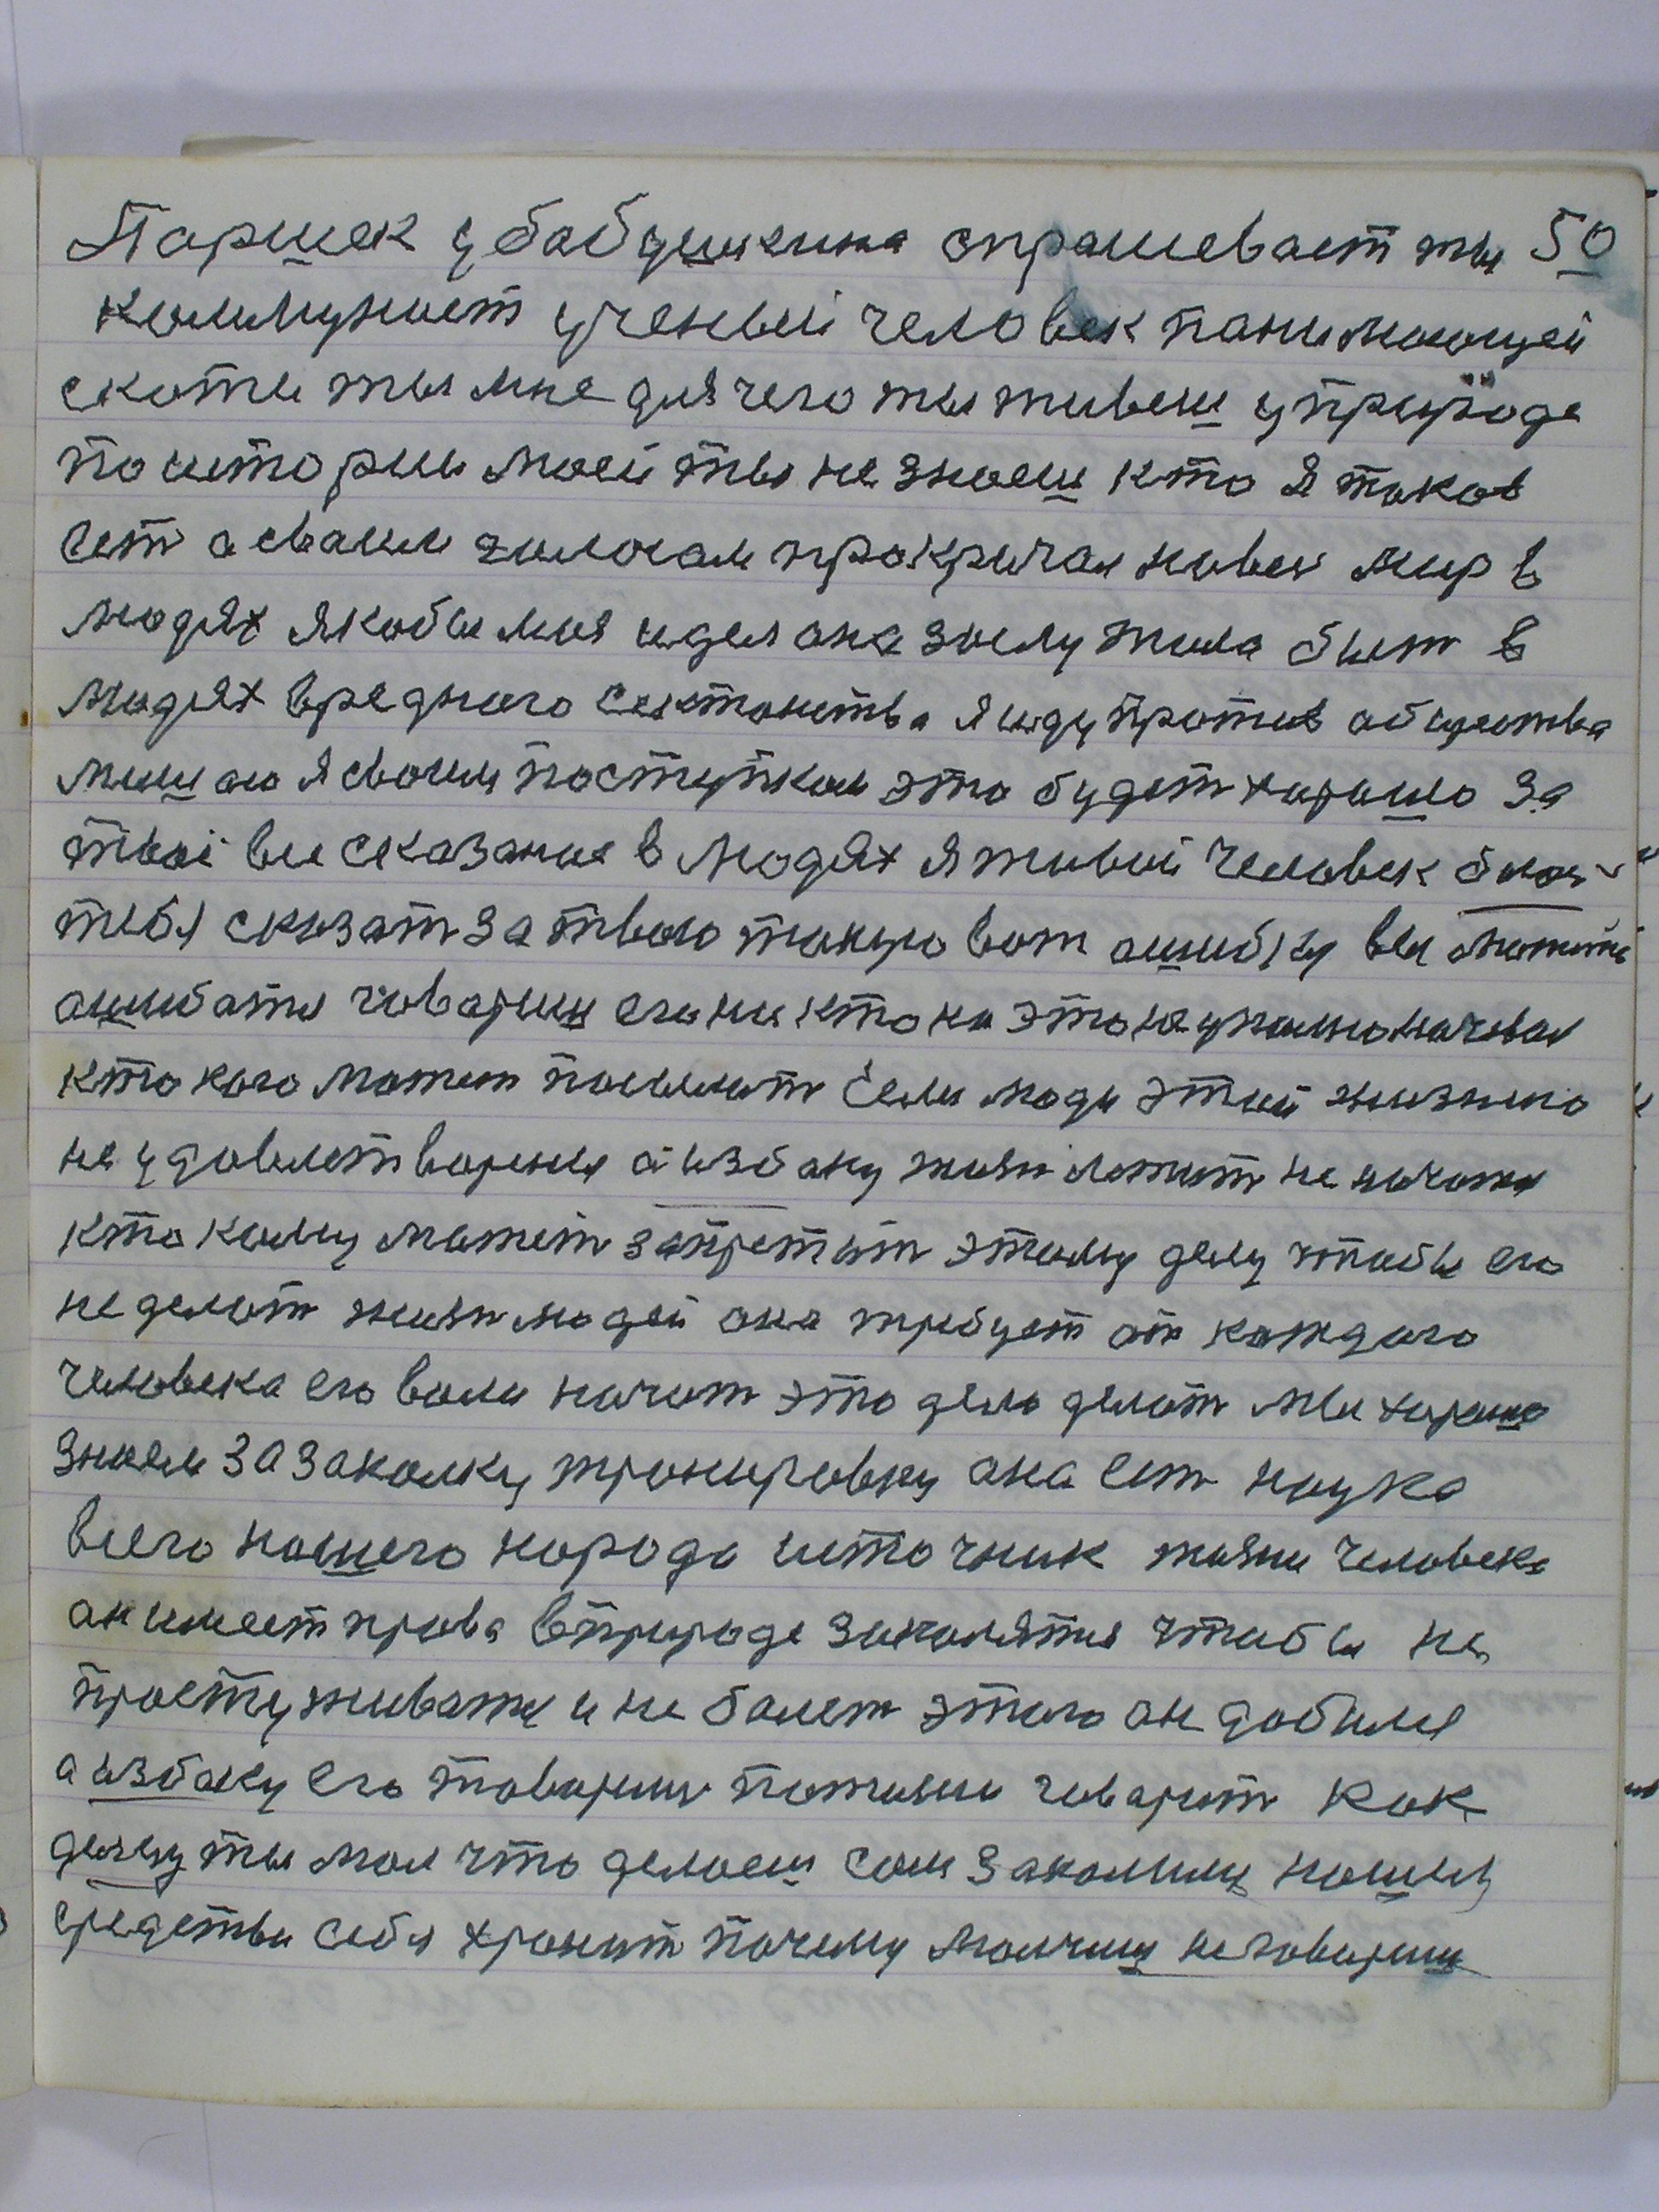 Паршек у бабушкина спрашевает ты 50
коммунист ученый человек панимающей
скоти ты мне для чего ты живеш у природе
по истории моей ты не знаеш кто я таков
ест а сваим голосам прокричал на весь мир в
людях якобы моя идея она заслужила быт в
людях вредного сектанства я иду против общества
мишаю я своим поступкам это будет харашо за
твое высказание в людях я живой человек
тебя сказат за твою такую вот ашибку вы можите
ашибатся говариш его никто на это не упалномачевал
кто кого может посылат если люди этай жизнию
не удовлетворения а избаку жизн лежит не начатая
кто каму может запретит этаму делу чтобы его
не делат жизн людей она требует от каждого
человека его воли начат это дело делат мы харашо
знаем за закалку тренировку она ест наука
всего нашего народа источник жизни человека
он имеет права в природе закалятся чтобы не
простуживатся и не болет этаго он добился
а избаку его товарищ пожизни говарит как
делу ты мол что делаеш сам закалину нашему
средства себя хранит почему молчиш не говариш